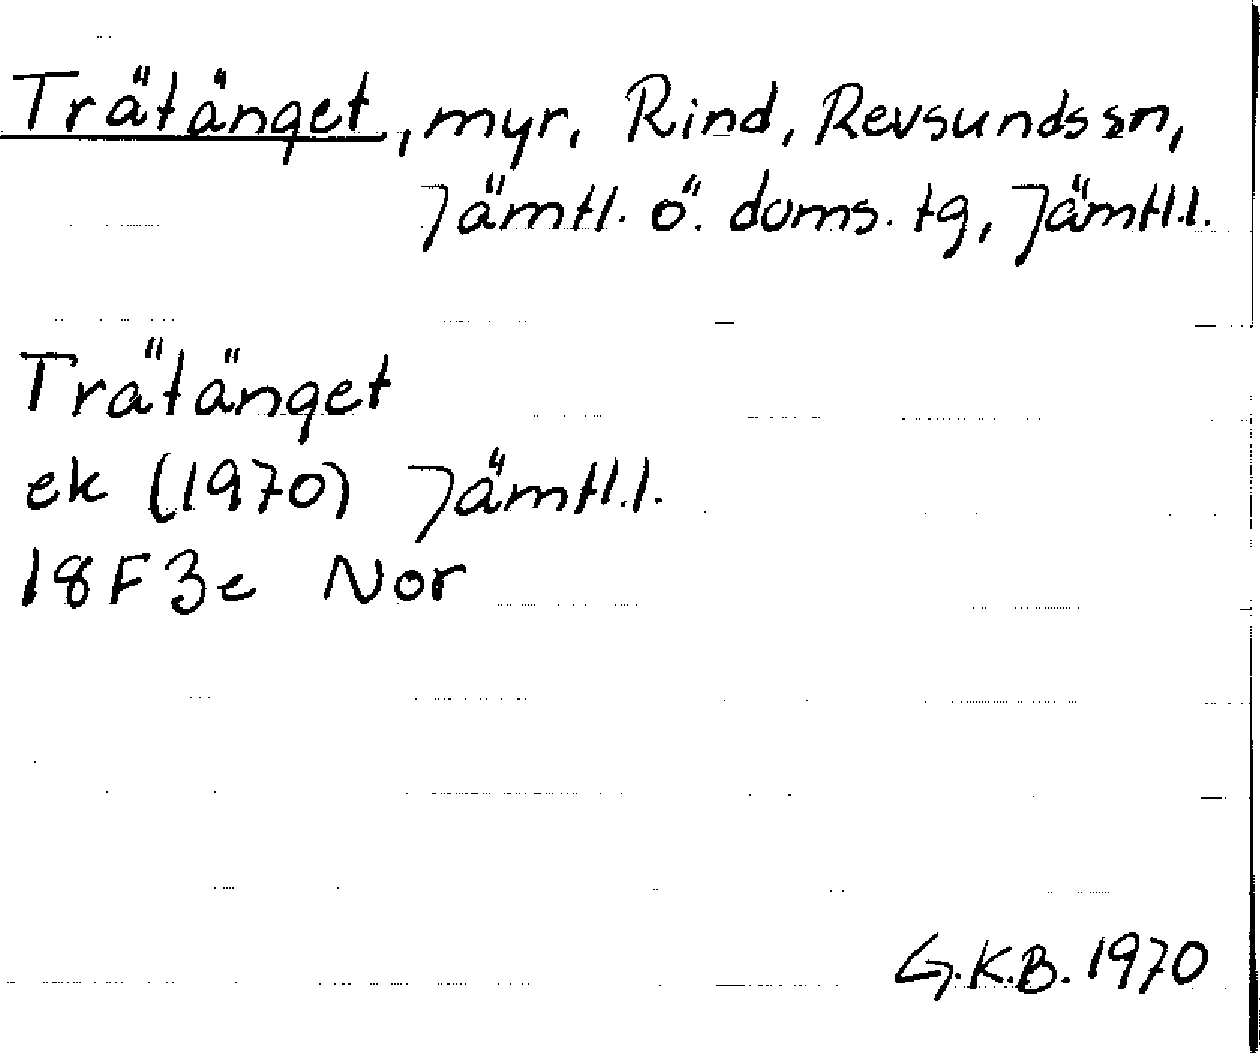 Trätänget, myr, Rind, Revsunds sn,
Jämtl. ö. doms. tg, Jämtl.l.
Trätänget
ek (1970) Jämtl.l.
18F3e Nor
G.K.B. 1970